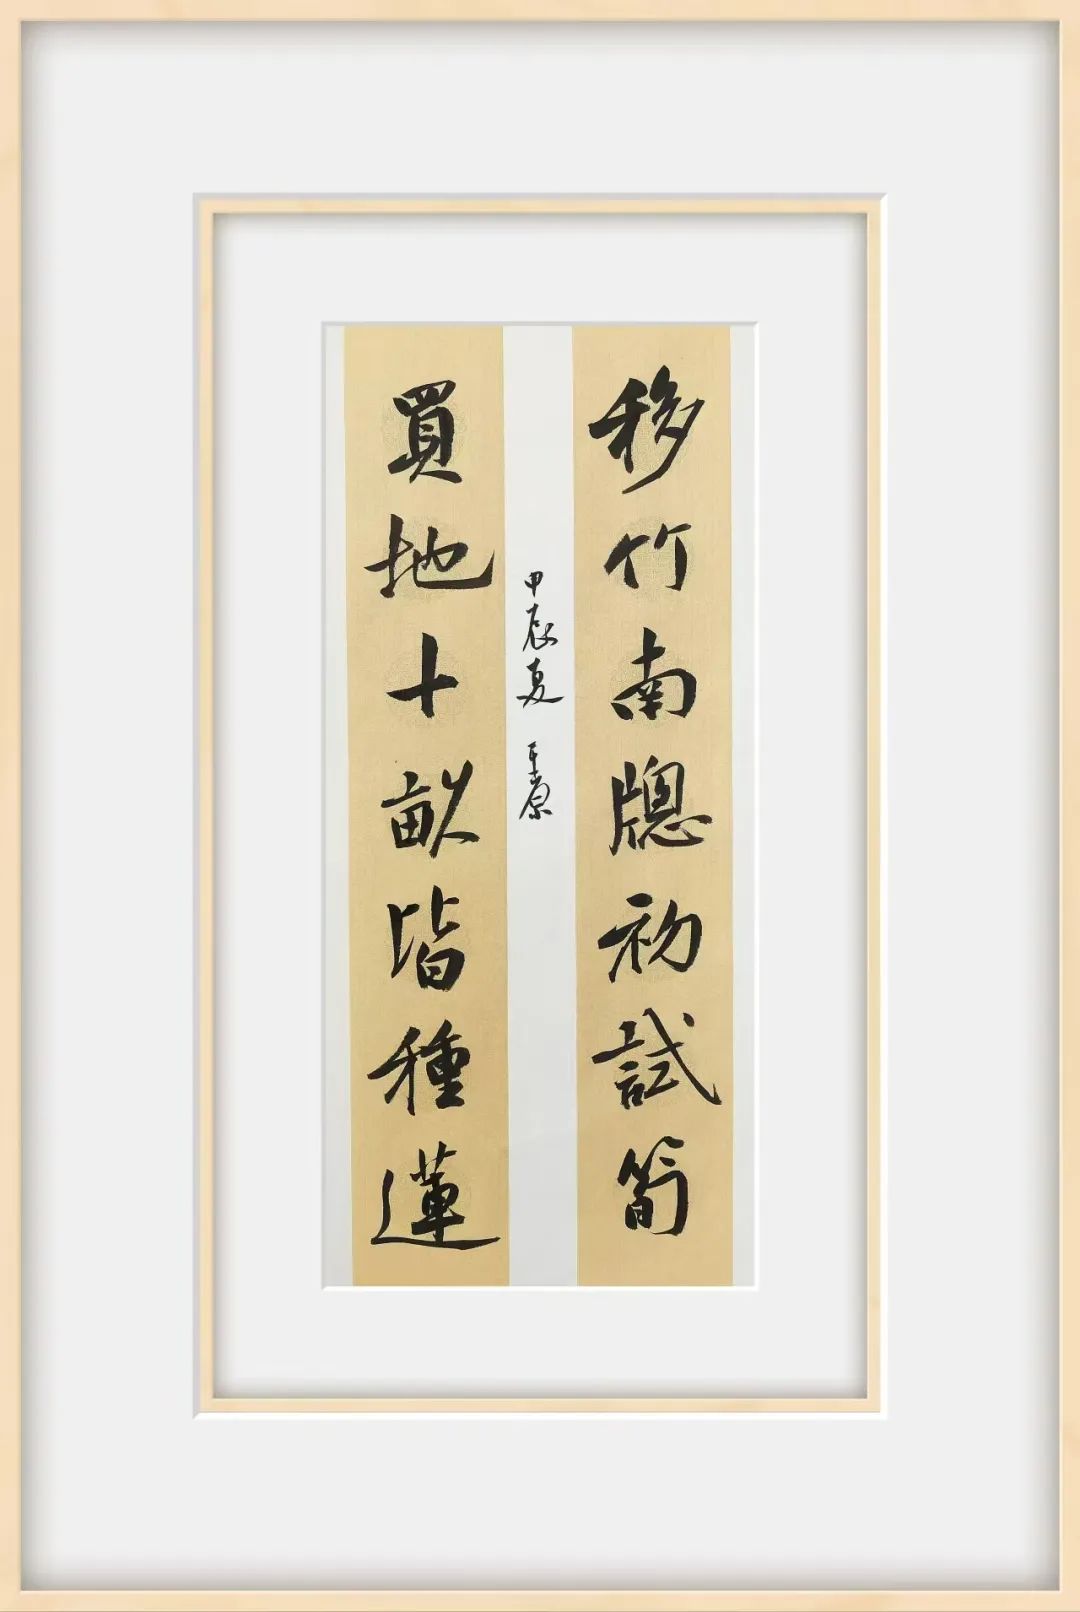 移竹南牕初試筍
買地十畝皆種蓮
甲辰夏 王原